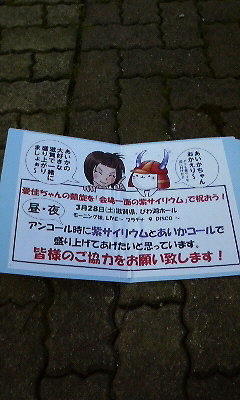 あいかの
大好きな
滋賀で一緒に
盛り上がり
ましょぉ〜
あいかちゃん
おかえり〜
愛佳ちゃんの凱旋を「会場一面の紫サイリウム」で祝おう!
昼・夜
3月28日(土)滋賀県、びわ湖ホール
モーニング娘。LIVE〜 プラチナ 9 DISCO 〜
アンコール時に紫サイリウムとあいかコールで
盛り上げてあげたいと思っています。
皆様のご協力をお願い致します!